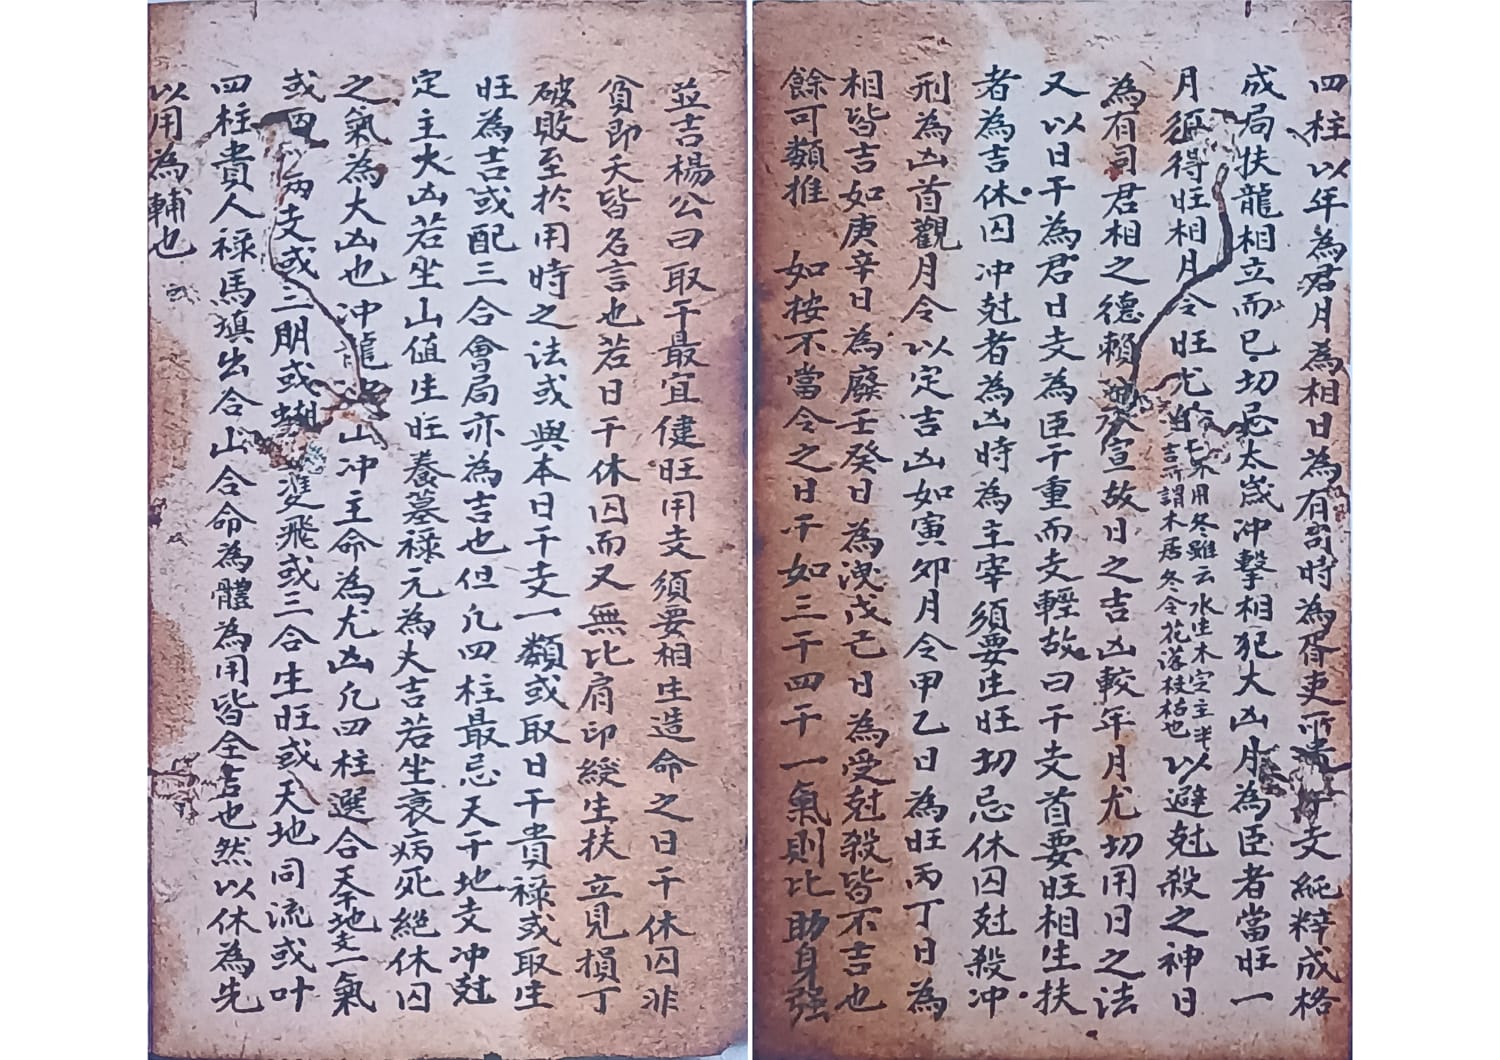 四柱以年為君月為相日為有司時為胥吏所貴干支純粹成格
成局扶龍相立而已切忌太歲冲擊相犯大凶月為臣者當旺一
月須得旺相月令旺尤
七不用冬雖云水生木定主半
吉所謂木居冬令花落枝枯也
以避尅殺之神日
為有司君相之德賴 宣故日之吉凶較年月尤切用日之法
又以日干為君日支為臣干重而支輕故曰干支首要旺相生扶
者為吉休囚冲尅者為凶時為主宰須要生旺切忌休囚尅殺冲
刑為凶首觀月令以定吉凶如寅夘月令甲乙日為旺丙丁日為
相皆吉如庚辛日為廢壬癸日為洩戊己日為受尅殺皆不吉也
餘可類推 如按不當令之日干如三干四干一氣則比助身强
並吉楊公曰取干最宜健旺用支須要相生造命之日干休囚非
貧即夭皆名言也若日干休囚而又無比肩印綬生扶立見損丁
破敗至於用時之法或與本日干支一類或取日干貴祿或取生
旺為吉或配三合會局亦為吉也但凢四柱最忌天干地支冲尅
定主大凶若坐山值生旺養墓祿元為大吉若坐衰病死絕休囚
之氣為大凶也冲龍 山冲主命為尢凶凢四柱選合天地支一氣
或四 兩支或三朋或蝴 雙飛或三合生旺或天地同流或叶
四柱貴人祿馬填出合山合命為體為用皆全吉也然以休為先
以用為輔也